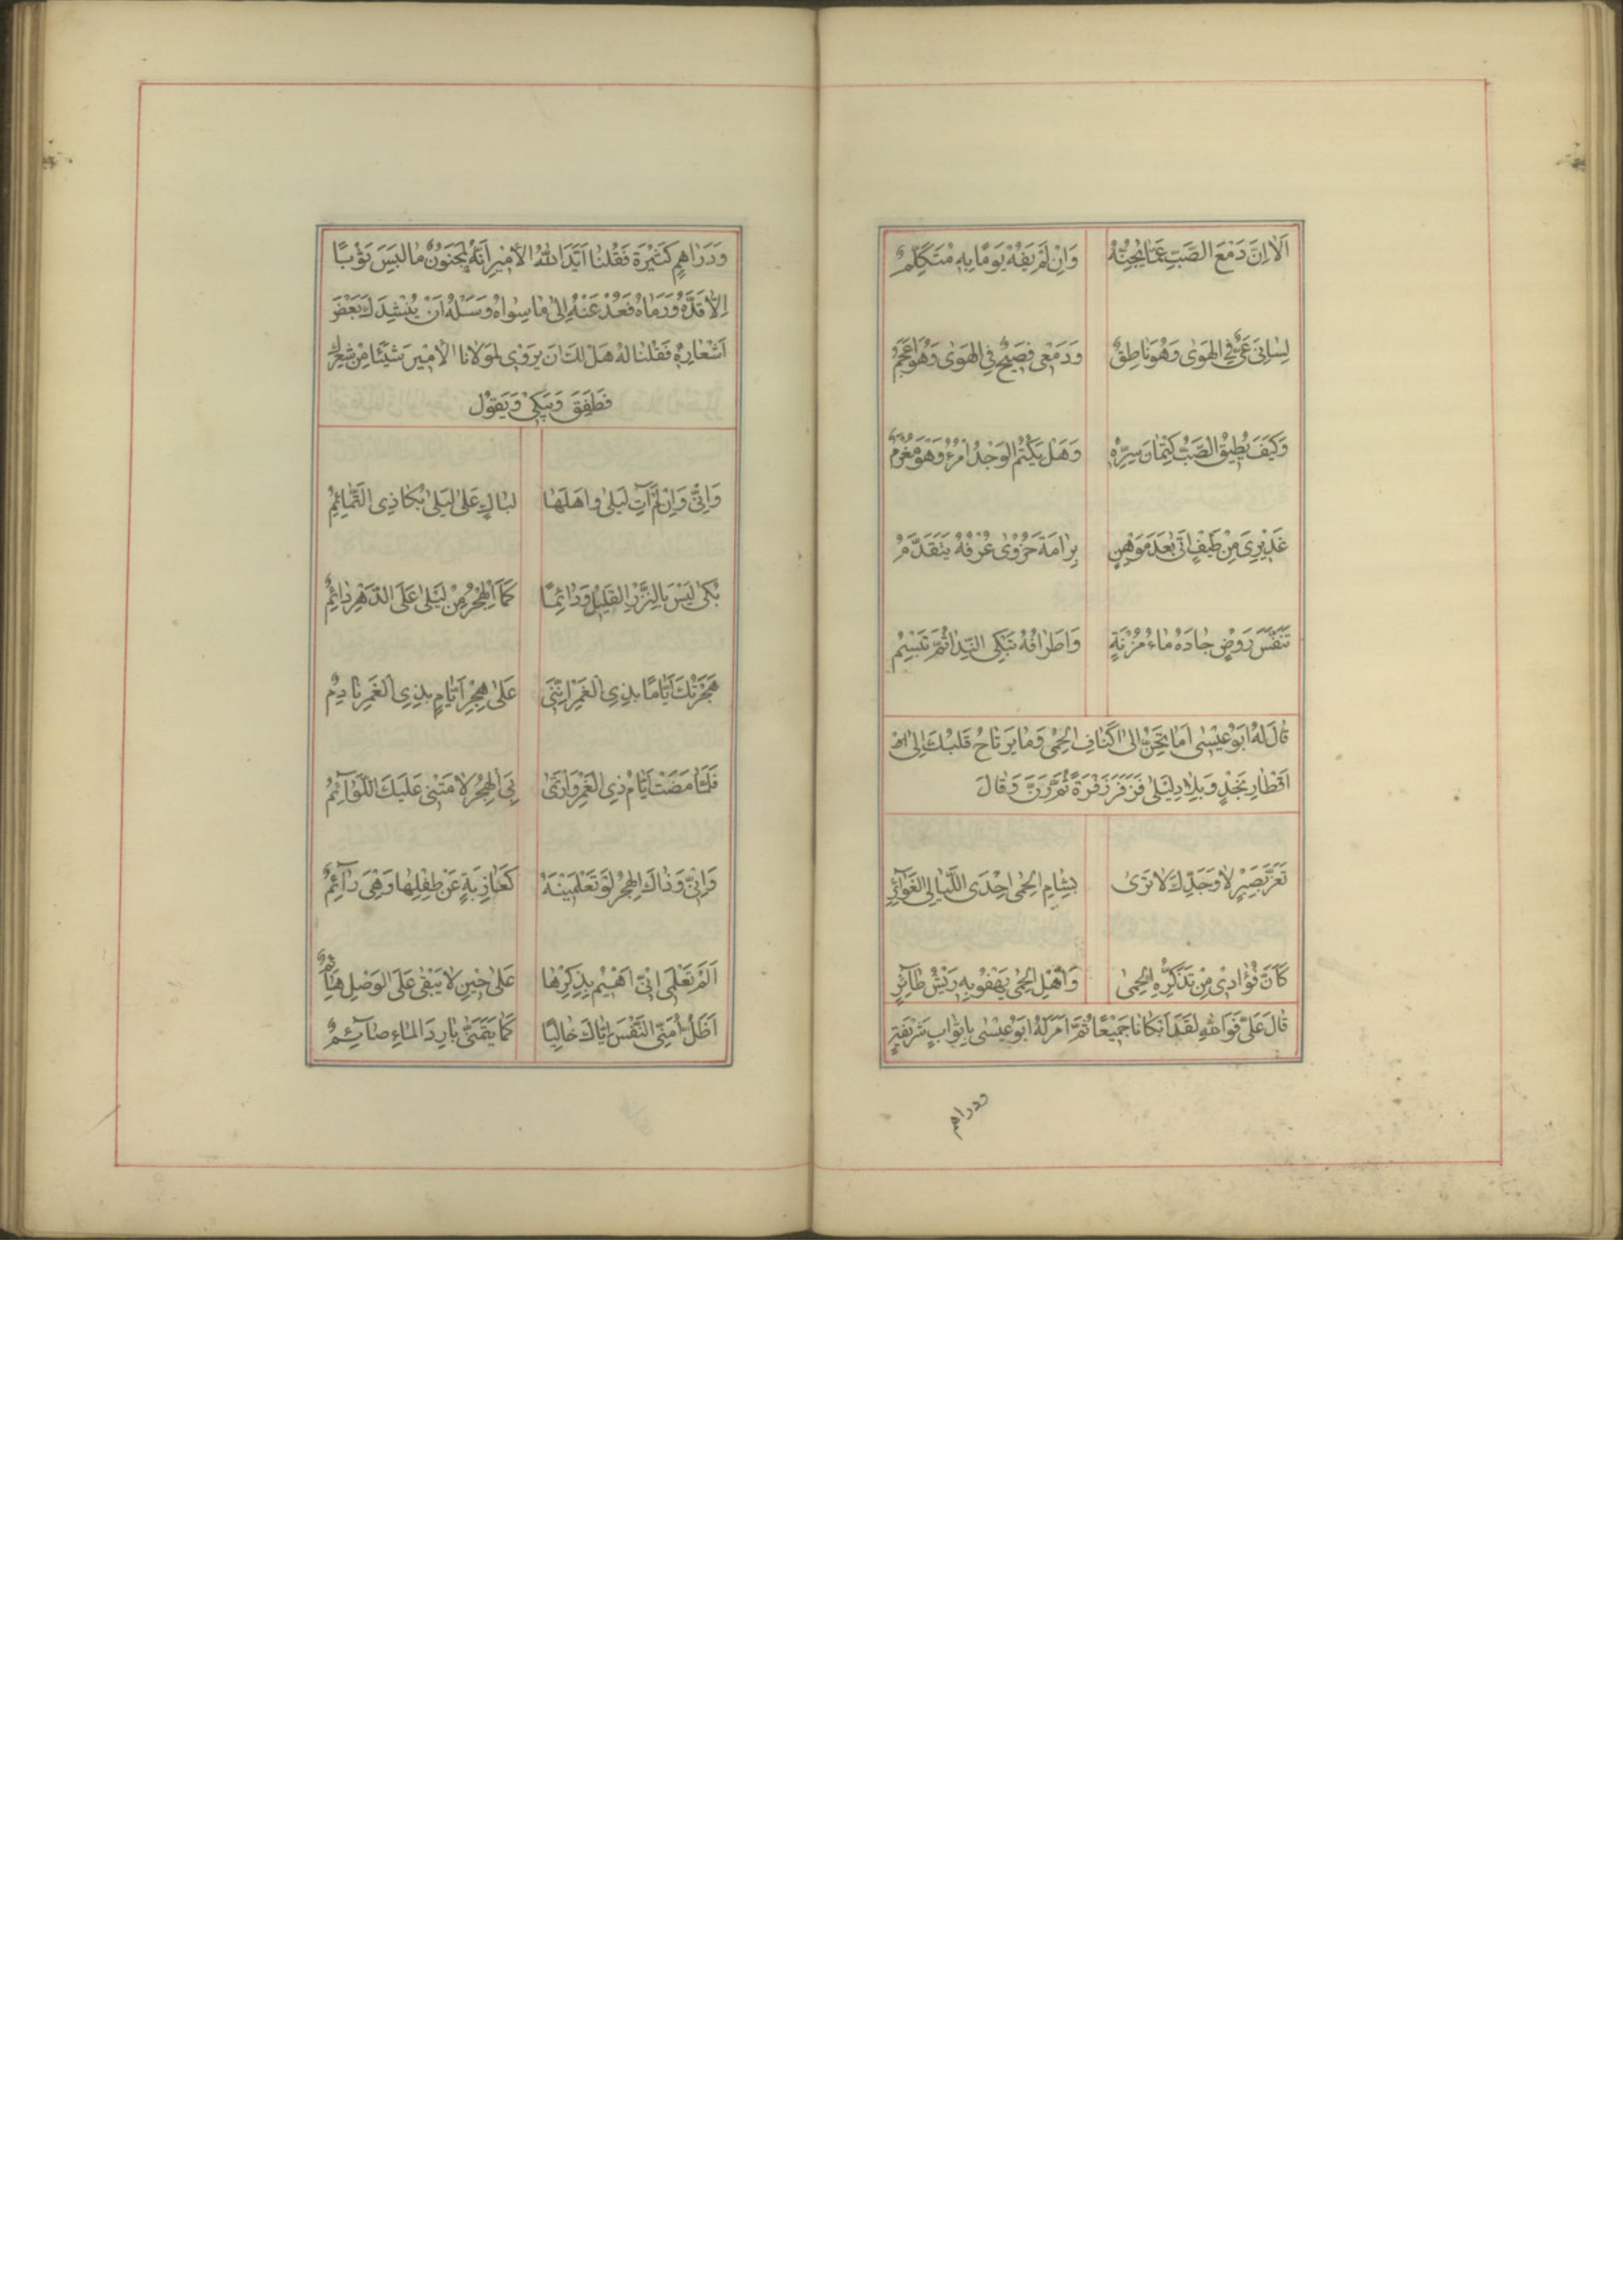 اَلٰا اِنَّ دَمْعَ الصَّبِّ عَمّٰا يُجِنُّهُ وَاِنْ لَمْ يَفُهْ يَوْمًا بِهِ مُتَكَلِّمٌ
لِسٰانِي عَيٌّ فِي الهَوٰى وَهُوَ نٰاطِقٌ وَدَمْعِي فَصِيحٌ فِي الهَوٰى وَهُوَ اَعْجَمُ
وَكَيْفَ يُطِيقُ الصَّبُّ كِتْمٰانَ سِرِّهِ وَهَلْ يَكْتُمُ الوَجْدَ امْرُءٌ وَهُوَ مُغْرَمٌ
عَذِيرِيَ مِنْ طَيْفٍ اَتٰى بَعْدَ مَوْهِنٍ بِرٰامَةَ حُزْوٰى عُرْفُهُ يَتَقَدَّمُ
تَنَفُّسَ رَوْضٍ جٰادَهُ مٰاءُ مُزْنَةٍ وَاَطْرٰافُهُ تَبْكِي النَّدٰا ثُمَّ تَبْسِمُ
قٰالَ لَهُ اَبُوْعِيسٰى اَمٰا تَحِنُّ اِلٰى اَكْنٰافِ الحِمٰى وَمٰا يَرْتٰاحُ قَلْبُكَ اِلٰى
اَقْطٰارِ نَجْدٍ وَبِلٰادِ لَيْلٰى فَزَفَرَ زَفْرَةً ثُمَّ رَنَّ وَقٰالَ
تَعَزَّ بِصَبْرٍ لٰا وَجَدِّكَ لٰا تَرٰى بِشٰامِ الحِمٰى اِحْدَى اللَّيٰالِي الغَوٰآئِرِ
كَاَنَّ فُؤٰادِي مِنْ تَذَكُّرِهِ الحِمٰى وَاَهْلِ الحِمٰى يَهْفُو بِهِ رِيْشُ طٰآئِرِ
قٰالَ عَلِيٌّ فَوَاللّٰهِ لَقَدْ اَبْكٰانٰا جَمِيْعًا ثُمَّ اَمَرَ لَهُ اَبُوْعِيْسٰى بِاَثْوٰابٍ شَرِيْفَةٍ
ودراهم
وَدَرٰاهِمِ كَثِيْرَةٍ فَقُلْنٰا اَيَّدَ اللّٰهُ الاَمِيْرَ اِنَّهُ لَمَجْنُونٌ مٰا لَبِسَ ثَوْبًا
اِلّٰا قَدَّهُ وَرَمٰاهُ فَعُدْ عَنْهُ اِلٰى مٰا سِوٰاهُ وَسَلْهُ اَنْ يُنْشِدَكَ بَعْضَ
اَشْعٰارِهِ فَقُلْنٰا لَهُ هَلْ لَكَ اَنْ يَرْوِيَ لِمَوْلٰانَا الاَمِيرَ شَيْئًا مِنْ شِعْرِكَ
فَطَفِقَ وَيَبْكِي وَيَقُوْلُ
وَاِنِّي وَاِنْ لَمْ آتِ لَيْلٰى وَاَهْلَهٰا لَبٰاكٍ عَلٰى لَيْلٰى بُكٰا ذِي التَّمٰائِمِ
بُكًى لَيْسَ بِالنَّزْرِ القَلِيلِ وَدٰائِمًا كَمَا الهَجْرُ مِنْ لَيْلٰى عَلَى الدَّهْرِ دٰائِمٌ
هَجَرْتُكَ اَيّٰامًا بِذِي الغَمْرِ اِنَّنِي عَلٰى هَجْرِ اَيّٰامٍ بِذِي الغَمْرِ نٰادِمٌ
فَلَمّٰا مَضَتْ اَيّٰامُ ذِي الغَمْرِ وَارْتَمٰى بِيَ الهَجْرُ لٰامَتْنِي عَلَيْكَ اللَّوٰآئِمُ
وَاِنِّي وَذٰاكَ الهَجْرُ لَوْ تَعْلَمِيْنَهُ كَعٰازِبَةٍ عَنْ طِفْلِهٰا وَهْيَ رٰآئِمٌ
اَلَمْ تَعْلَمِي اَنِّي اَهِيْمُ بِذِكْرِهٰا عَلٰى حِينِ لٰا يَبْقٰى عَلَى الوَصْلِ هٰآئِمٌ
اَظَلُّ اُمَنِّي النَّفْسَ اِيّٰاكَ خٰالِيًا كَمٰا يَتَمَنّٰى بٰارِدَ المٰاءِ صٰآئِمٌ